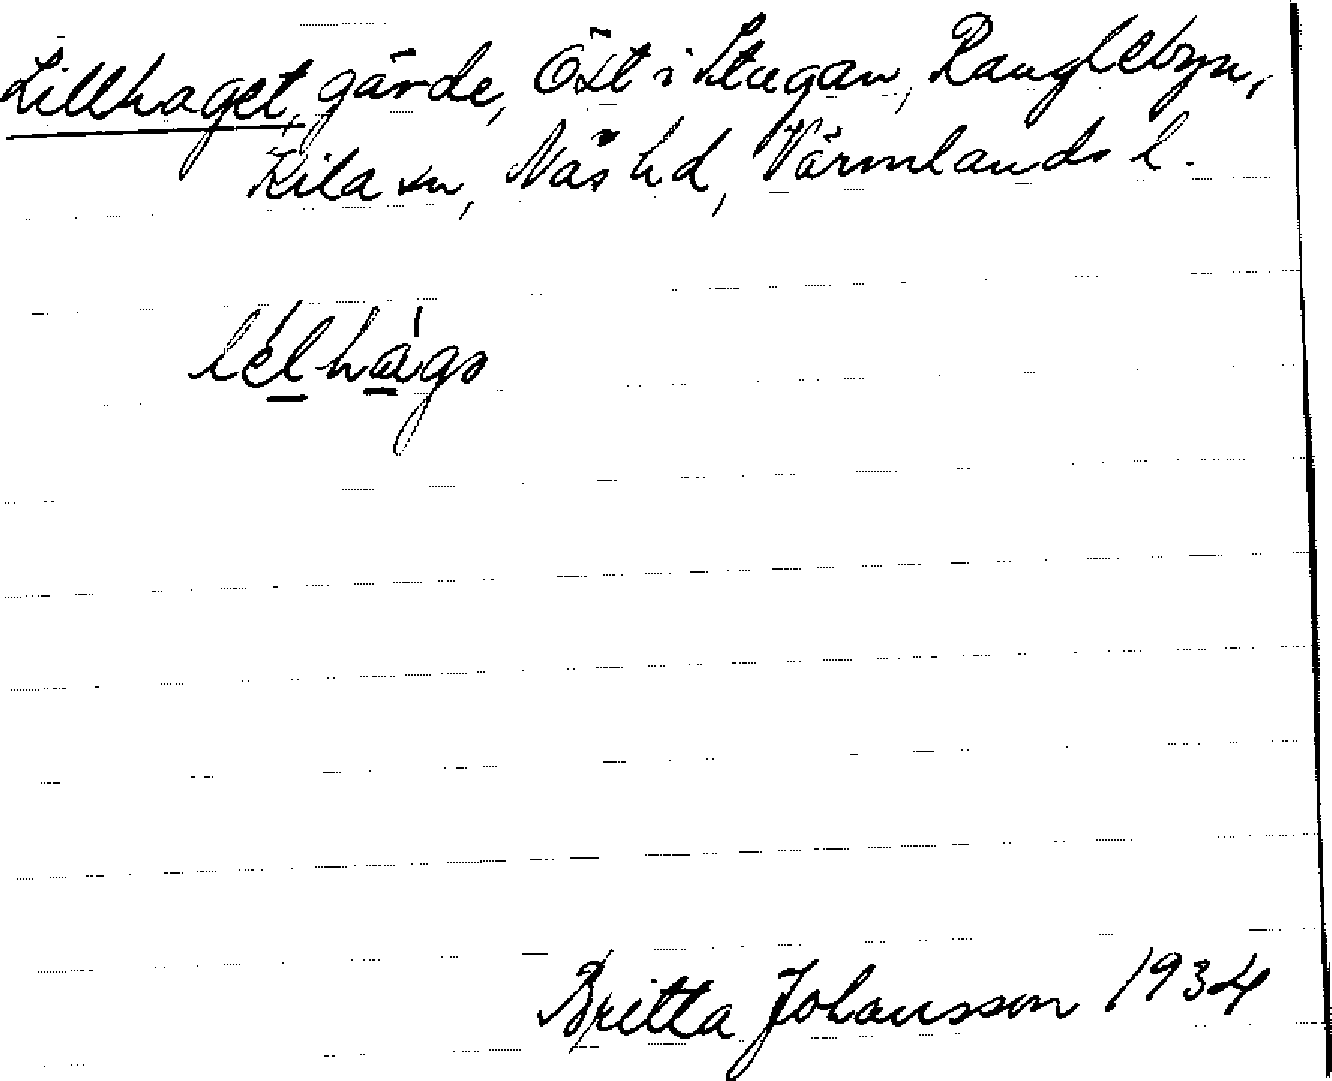 Lillhaget, gärde, Öst i Stugan, Ranglebyn,
Kila sn, Näs hd, Värmlands l.
lélhàgo
Britta Johansson 1934